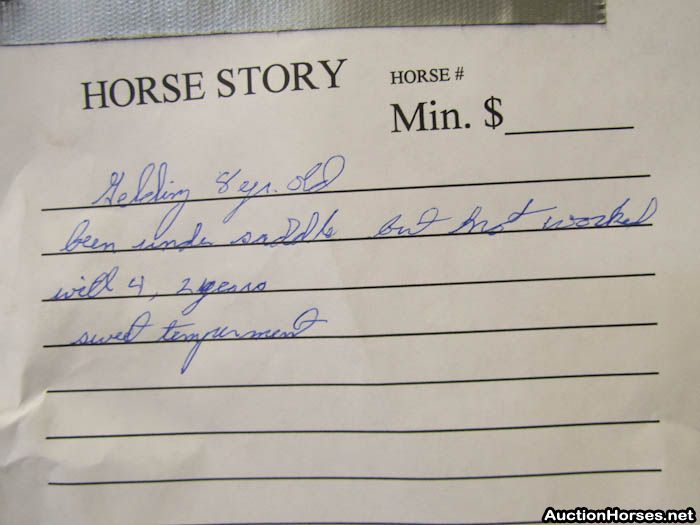 HORSE STORY
HORSE #
Min. $
Gelding 8 yr. old
been under saddle but not worked
with 4, 2 years
sweet temperment
AuctionHorses.net